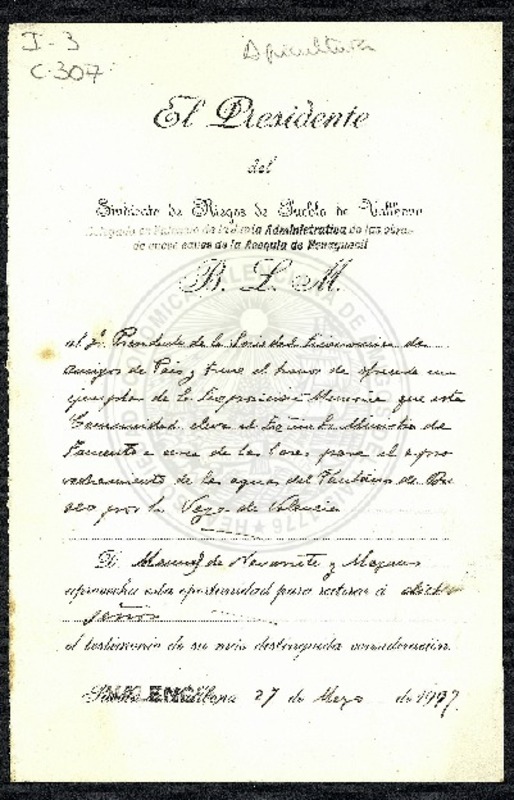 I-3
C-307
Apicultura
El Presidente
del
Sindicato de Riegos de Puebla de Vallbona
Delegado en Valencia de la Administrativa de las obras
de nuevo cauce de la Acequia de Benaguacil
B. L. M.
al Sr. Presidente de la Sociedad Economica de
Amigos de Pais y tiene el honor de ofrecerle un
ejemplar de la Exposicion Memoria que esta
Comunidad eleva al Exmo Sr Ministro de
Fomento a cerca de las bases para el apro
vechamiento de las aguas del Pantano de
por la Vega de Valencia
D. Manuel de Navarrete y
aprovecha esta oportunidad para reiterar á dicho
señor
el testimonio de su más distinguida consideración.
VALENCIA 27 de Mayo de 1927.
REAL SOCIEDAD ECONOMICA VALENCIANA DE AMIGOS DEL PAIS 1776